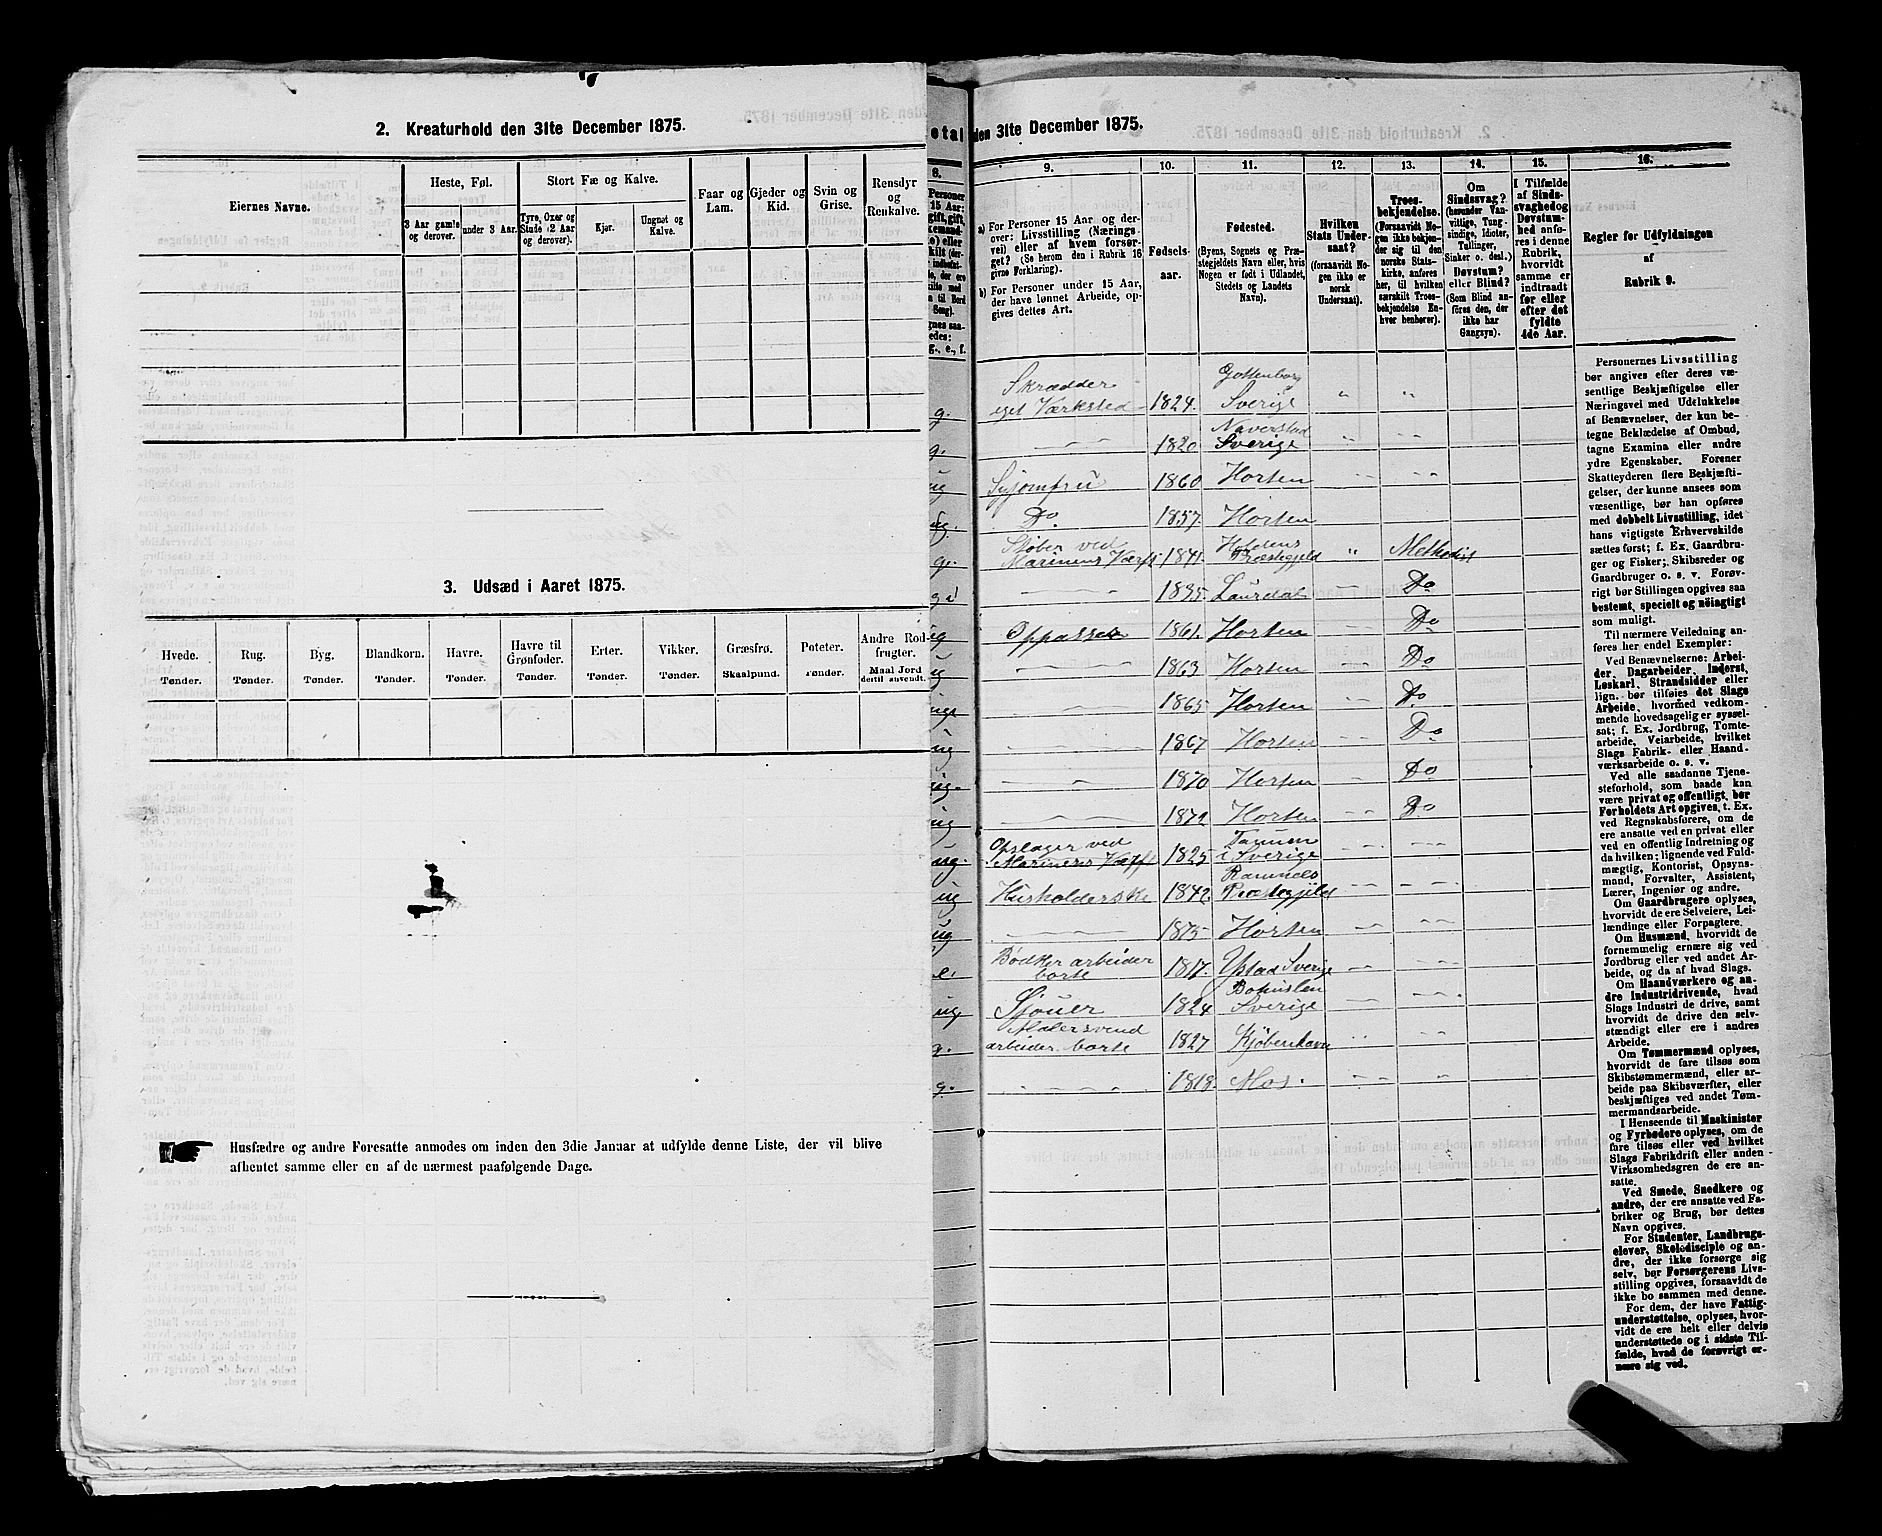 2. Kreaturhold den 31te December 1875.
Eiernes Navne.
Heste, Føl.
Stort Fæ og Kalve.
Faar og Lam.
Gjeder og Kid.
Svin og Grise.
Rensdyr og Renkalve.
3 Aar gamle og derover.
under 3 Aar.
Tyre, Oxer og Stude (2 Aar og derover).
Kjør.
Ungnøt og Kalve.
3. Udsæd i Aaret 1875.
Hvede. Tønder.
Rug. Tønder.
Byg. Tønder.
Blandkorn. Tønder.
Havre. Tønder.
Havre til Grønfoder. Tønder.
Erter. Tønder.
Vikker. Tønder.
Græsfrø. Skaalpund.
Poteter. Tønder.
Andre Rodfrugter. Maal Jord dertil anvendt.
Husfædre og andre Foresatte anmodes om inden den 3die Januar at udfylde denne Liste, der vil blive
afhentet samme eller en af de nærmest paafølgende Dage.
den 31te December 1875.
9.
10.
11.
12.
13.
14.
15.
16.
a) For Personer 15 Aar og derover: Livsstilling (Næringsvei) eller af hvem forsørget? (Se herom den i Rubrik 16 givne Forklaring).
b) For Personer under 15 Aar, der have lønnet Arbeide, opgives dettes Art.
Fødselsaar.
Fødested.
(Byens, Sognets og Præstegjeldets Navn eller, hvis Nogen er født i Udlandet, Stedets og Landets Navn).
Hvilken Stats Undersaat?
(forsaavidt Nogen ikke er norsk Undersaat).
Troesbekjendelse.
(Forsaavidt Nogen ikke bekjender sig til den norske Statskirke, anføres her, til hvilken særskilt Troesbekjendelse Enhver henhører).
Om Sindssvag? (herunder Vanvittige, Tungsindige, Idioter, Tullinger, Sinker o. desl.) Døvstum? eller Blind? (Som Blind anføres den, der ikke har Gangsyn).
I Tilfælde af Sindssvaghed og Døvstumhed anføres i denne Rubrik, hvorvidt samme er indtraadt før eller efter det fyldte 4de Aar.
Regler for Udfyldningen af Rubrik 9.
g. Skrædder eget Værksted 1824. Gottenborg Sverige " "
g. 1820 Naverstad Sverige
ug Syjomfru 1860 Horten
ug. Do 1857. Horten
g. Støber ved Marinens Værft 1841. Præstegjeld " Methodist
1835. Laurdal Do
ug Oppasser 1861. Horten Do
ug 1863 Horten Do
ug 1865 Horten Do
ug 1867 Horten Do
ug. 1870 Horten Do
ug 1872 Horten Do
ug. Opslager ved Marinens Værft 1825 Tanum i Sverige
ug Husholderske 1842. Ramnes Præstegjeld
ug 1875 Horten
e. Bødker arbeider borte 1817. Ystad Sverige
ug. Sjouer 1824 Bohuslen Sverige
g. Malersvend arbeider borte 1827 Kjøbenhavn
g. 1818. Mos.
Personernes Livsstilling
bør angives efter deres væsentlige
Beskjæftigelse eller
Næringsvei med Udelukkelse
af Benævnelser, der kun betegne
Beklædelse af Ombud,
tagne Examina eller andre
ydre Egenskaber. Forener
Skatteyderen flere Beskjæftigelser,
der kunne ansees som
væsentlige, bør han opføres
med dobbelt Livsstilling, idet
hans vigtigste Erhvervskilde
sættes først; f. Ex. Gaardbruger
og Fisker; Skibsreder og
Gaardbruger o. s. v. Forøvrigt
bør Stillingen opgives saa
bestemt, specielt og nøiagtigt
som muligt.
Til nærmere Veiledning anføres
her endel Exempler:
Ved Benævnelserne: Arbeider,
Dagarbeider, Inderst,
Løskarl, Strandsidder eller
lign. bør tilføies det Slags
Arbeide, hvormed vedkommende
hovedsagelig er sysselsat;
f. Ex. Jordbrug, Tomtearbeide,
Veiarbeide, hvilket
Slags Fabrik- eller Haandværksarbeide
o. s. v.
Ved alle saadanne Tjenesteforhold,
som baade kan
være privat og offentligt, bør
Forholdets Art opgives, t. Ex.
ved Regnskabsførere, om de
ere ansatte ved en privat eller
ved en offentlig Indretning og
da hvilken; lignende ved Fuldmægtig,
Kontorist, Opsynsmand,
Forvalter, Assistent,
Lærer, Ingeniør og andre.
Om Gaardbrugere oplyses,
hvorvidt de ere Selveiere, Leilændinge
eller Forpagtere.
Om Husmænd, hvorvidt de
fornemmelig ernære sig ved
Jordbrug eller ved andet Arbeide,
og da af hvad Slags.
Om Haandværkere og andre
Industridrivende, hvad
Slags Industri de drive, samt
hvorvidt de drive den selvstændigt
eller ere i andres
Arbeide.
Om Tømmermænd oplyses,
hvorvidt de fare tilsøs som
Skibstømmermænd, eller arbeide
paa Skibsværfter, eller
beskjæftiges ved andet Tømmermandsarbeide.
I Henseende til Maskinister
og Fyrbødere oplyses, om de
fare tilsøs eller ved hvilket
Slags Fabrikdrift eller anden
Virksomhedsgren de ere ansatte.
Ved Smede, Snedkere og
andre, der ere ansatte ved Fabriker
og Brug, bør dettes
Navn opgives.
For Studenter, Landbrugselever,
Skoledisciple og andre,
der ikke forsørge sig
selv, bør Forsørgerens Livsstilling
opgives, forsaavidt de
ikke bo sammen med denne.
For dem, der have Fattigunderstøttelse,
oplyses, hvorvidt
de ere helt eller delvis
understøttede og i sidste Tilfælde,
hvad de forøvrigt ernære
sig ved.